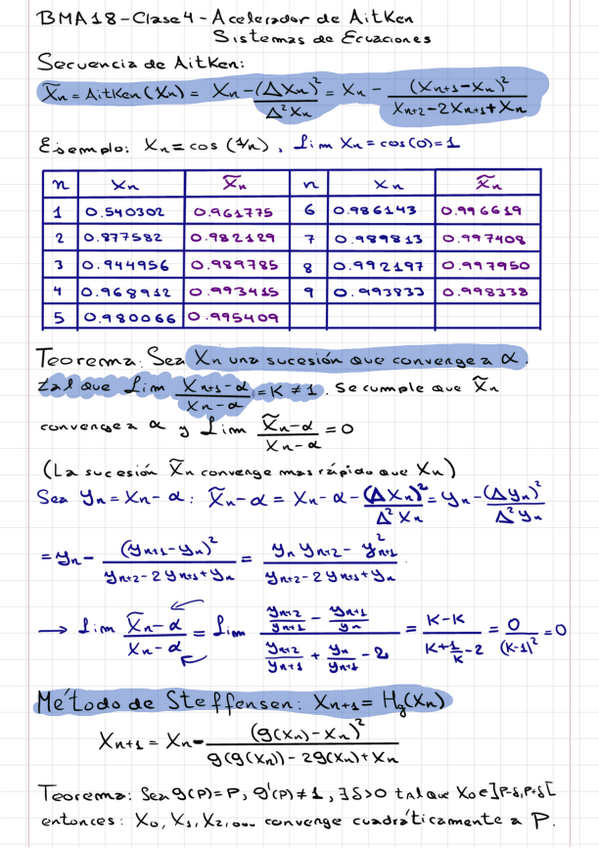 BMA18-Clase4-Acelerador de Aitken
Sistemas de Ecuaciones
Secuencia de Aitken:
X̃n = Aitken(Xn) = Xn - (ΔXn)²/Δ²Xn = Xn - (Xn+1-Xn)²/(Xn+2-2Xn+1+Xn)
Ejemplo: Xn = cos(1/n), Lim Xn = cos(0)=1
n Xn X̃n n Xn X̃n
1 0.540302 0.961775 6 0.986143 0.996619
2 0.877582 0.982129 7 0.989813 0.997408
3 0.944956 0.989785 8 0.992197 0.997950
4 0.968912 0.993415 9 0.993833 0.998338
5 0.980066 0.995409
Teorema: Sea Xn una sucesión que converge a α.
tal que Lim (Xn+1-α)/(Xn-α) = K ≠ 1. Se cumple que X̃n
converge a α y Lim (X̃n-α)/(Xn-α) = 0
(La sucesión X̃n converge mas rápido que Xn)
Sea yn = Xn-α: X̃n-α = Xn-α-(ΔXn)²/Δ²Xn = yn-(Δyn)²/Δ²yn
= yn - (yn+1-yn)²/(yn+2-2yn+1+yn) = (yn yn+2 - y²n+1)/(yn+2-2yn+1+yn)
→ Lim (X̃n-α)/(Xn-α) = Lim (yn+2/yn+1 - yn+1/yn)/(yn+2/yn+1 + yn/yn+1 - 2) = (K-K)/(K+1/K-2) = 0/(K-1)² = 0
Método de Steffensen: Xn+1 = Hg(Xn)
Xn+1 = Xn - (g(Xn)-Xn)²/(g(g(Xn))-2g(Xn)+Xn)
Teorema: Sea g(P)=P, g'(P)≠1, ∃δ>0 tal que X0∈]P-δ,P+δ[
entonces: X0, X1, X2,... converge cuadráticamente a P.